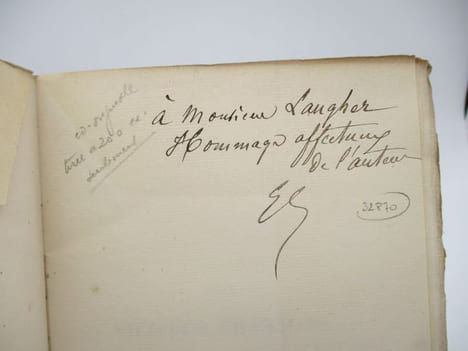 éd. originale
tirée à 200 ex.
seulement
à Monsieur Laugher
Hommage affectueux
de l'auteur
32870